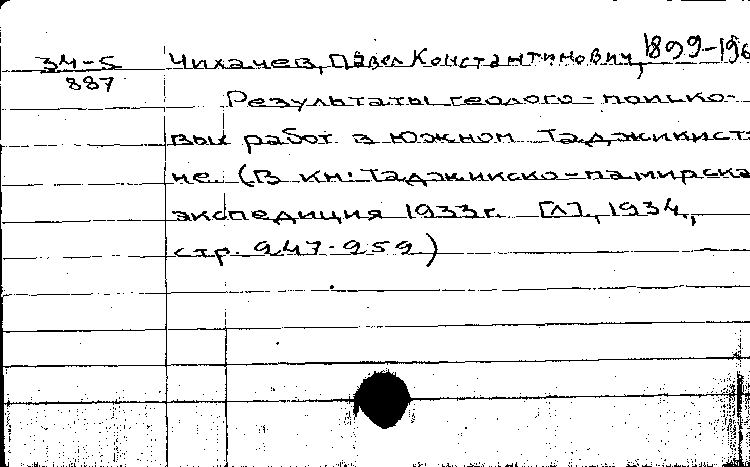 34-5 Чихачев, Павел Константинович, 1899-196
887
Результаты геолого-поиско-
вых работ в Южном Таджикист
не. (В кн: Таджикско-памирска
экспедиция 1933 г. [Л], 1934,
стр. 947-959)